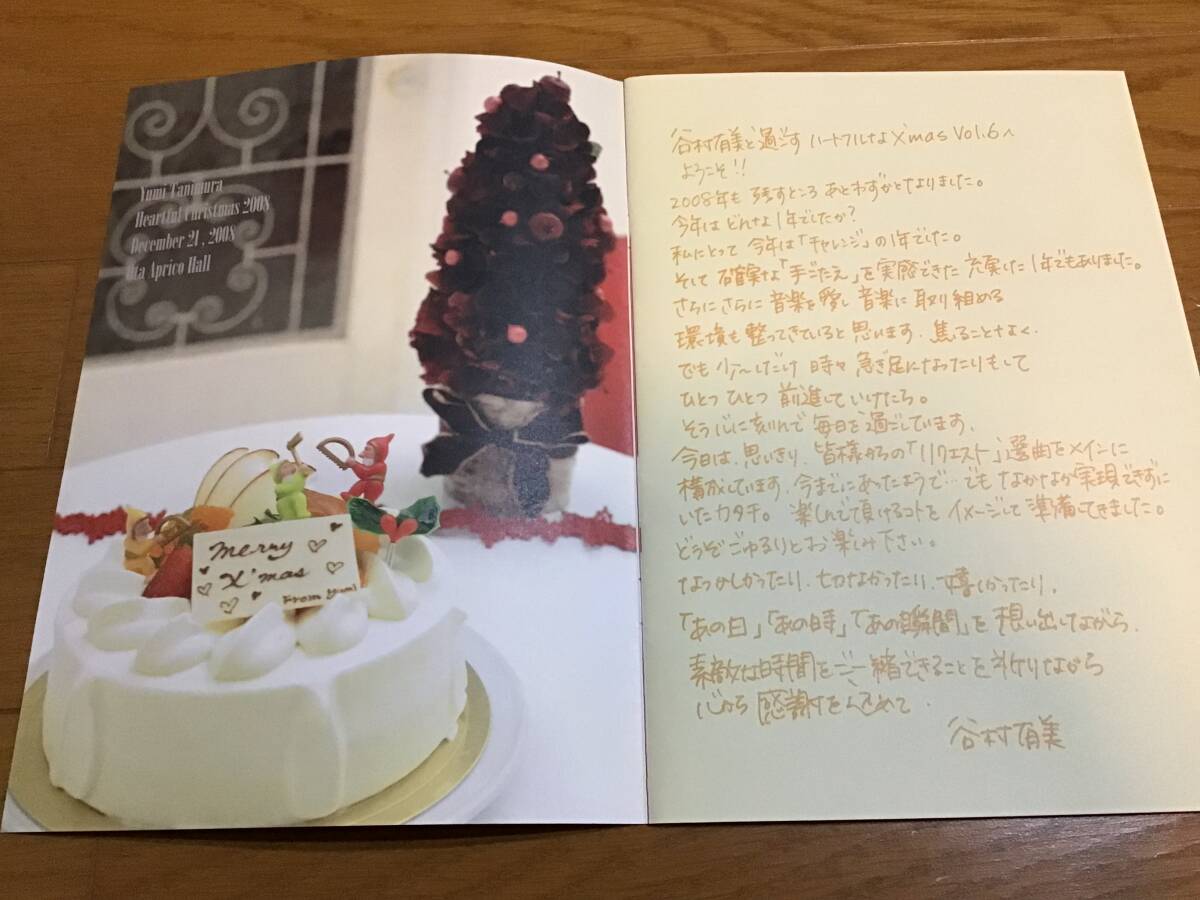 Yumi Tanimura
Heartful Christmas 2008
December 21, 2008
Ota Aprico Hall
merry
X'mas
From Yumi
谷村有美と過ごす ハートフルなX'mas Vol.6へ
ようこそ!!
2008年も 残すところ あとわずかとなりました。
今年は どんな1年でしたか?
私にとって 今年は「チャレンジ」の1年でした。
そして 確実な「手ごたえ」を実感できた 充実した1年でもありました。
さらにさらに 音楽を愛し 音楽に 取り組める
環境も整ってきていると思います. 焦ることなく.
でも 少〜しだけ 時々 急ぎ足になったりもして
ひとつ ひとつ 前進していけたら。
そう心に刻んで 毎日を過ごしています.
今日は. 思いきり. 皆様からの「リクエスト」選曲をメインに
構成しています. 今までにあったようで…でも なかなか実現できずに
いたカタチ。 楽しんで頂けるコトを イメージして 準備してきました。
どうぞ ごゆるりとお楽しみ下さい。
なつかしかったり. 切なかったり. 嬉しかったり.
「あの日」「あの時」「あの瞬間」を 想い出しながら.
素敵な時間をご一緒できることを 祈りながら
心から 感謝を込めて.
谷村有美